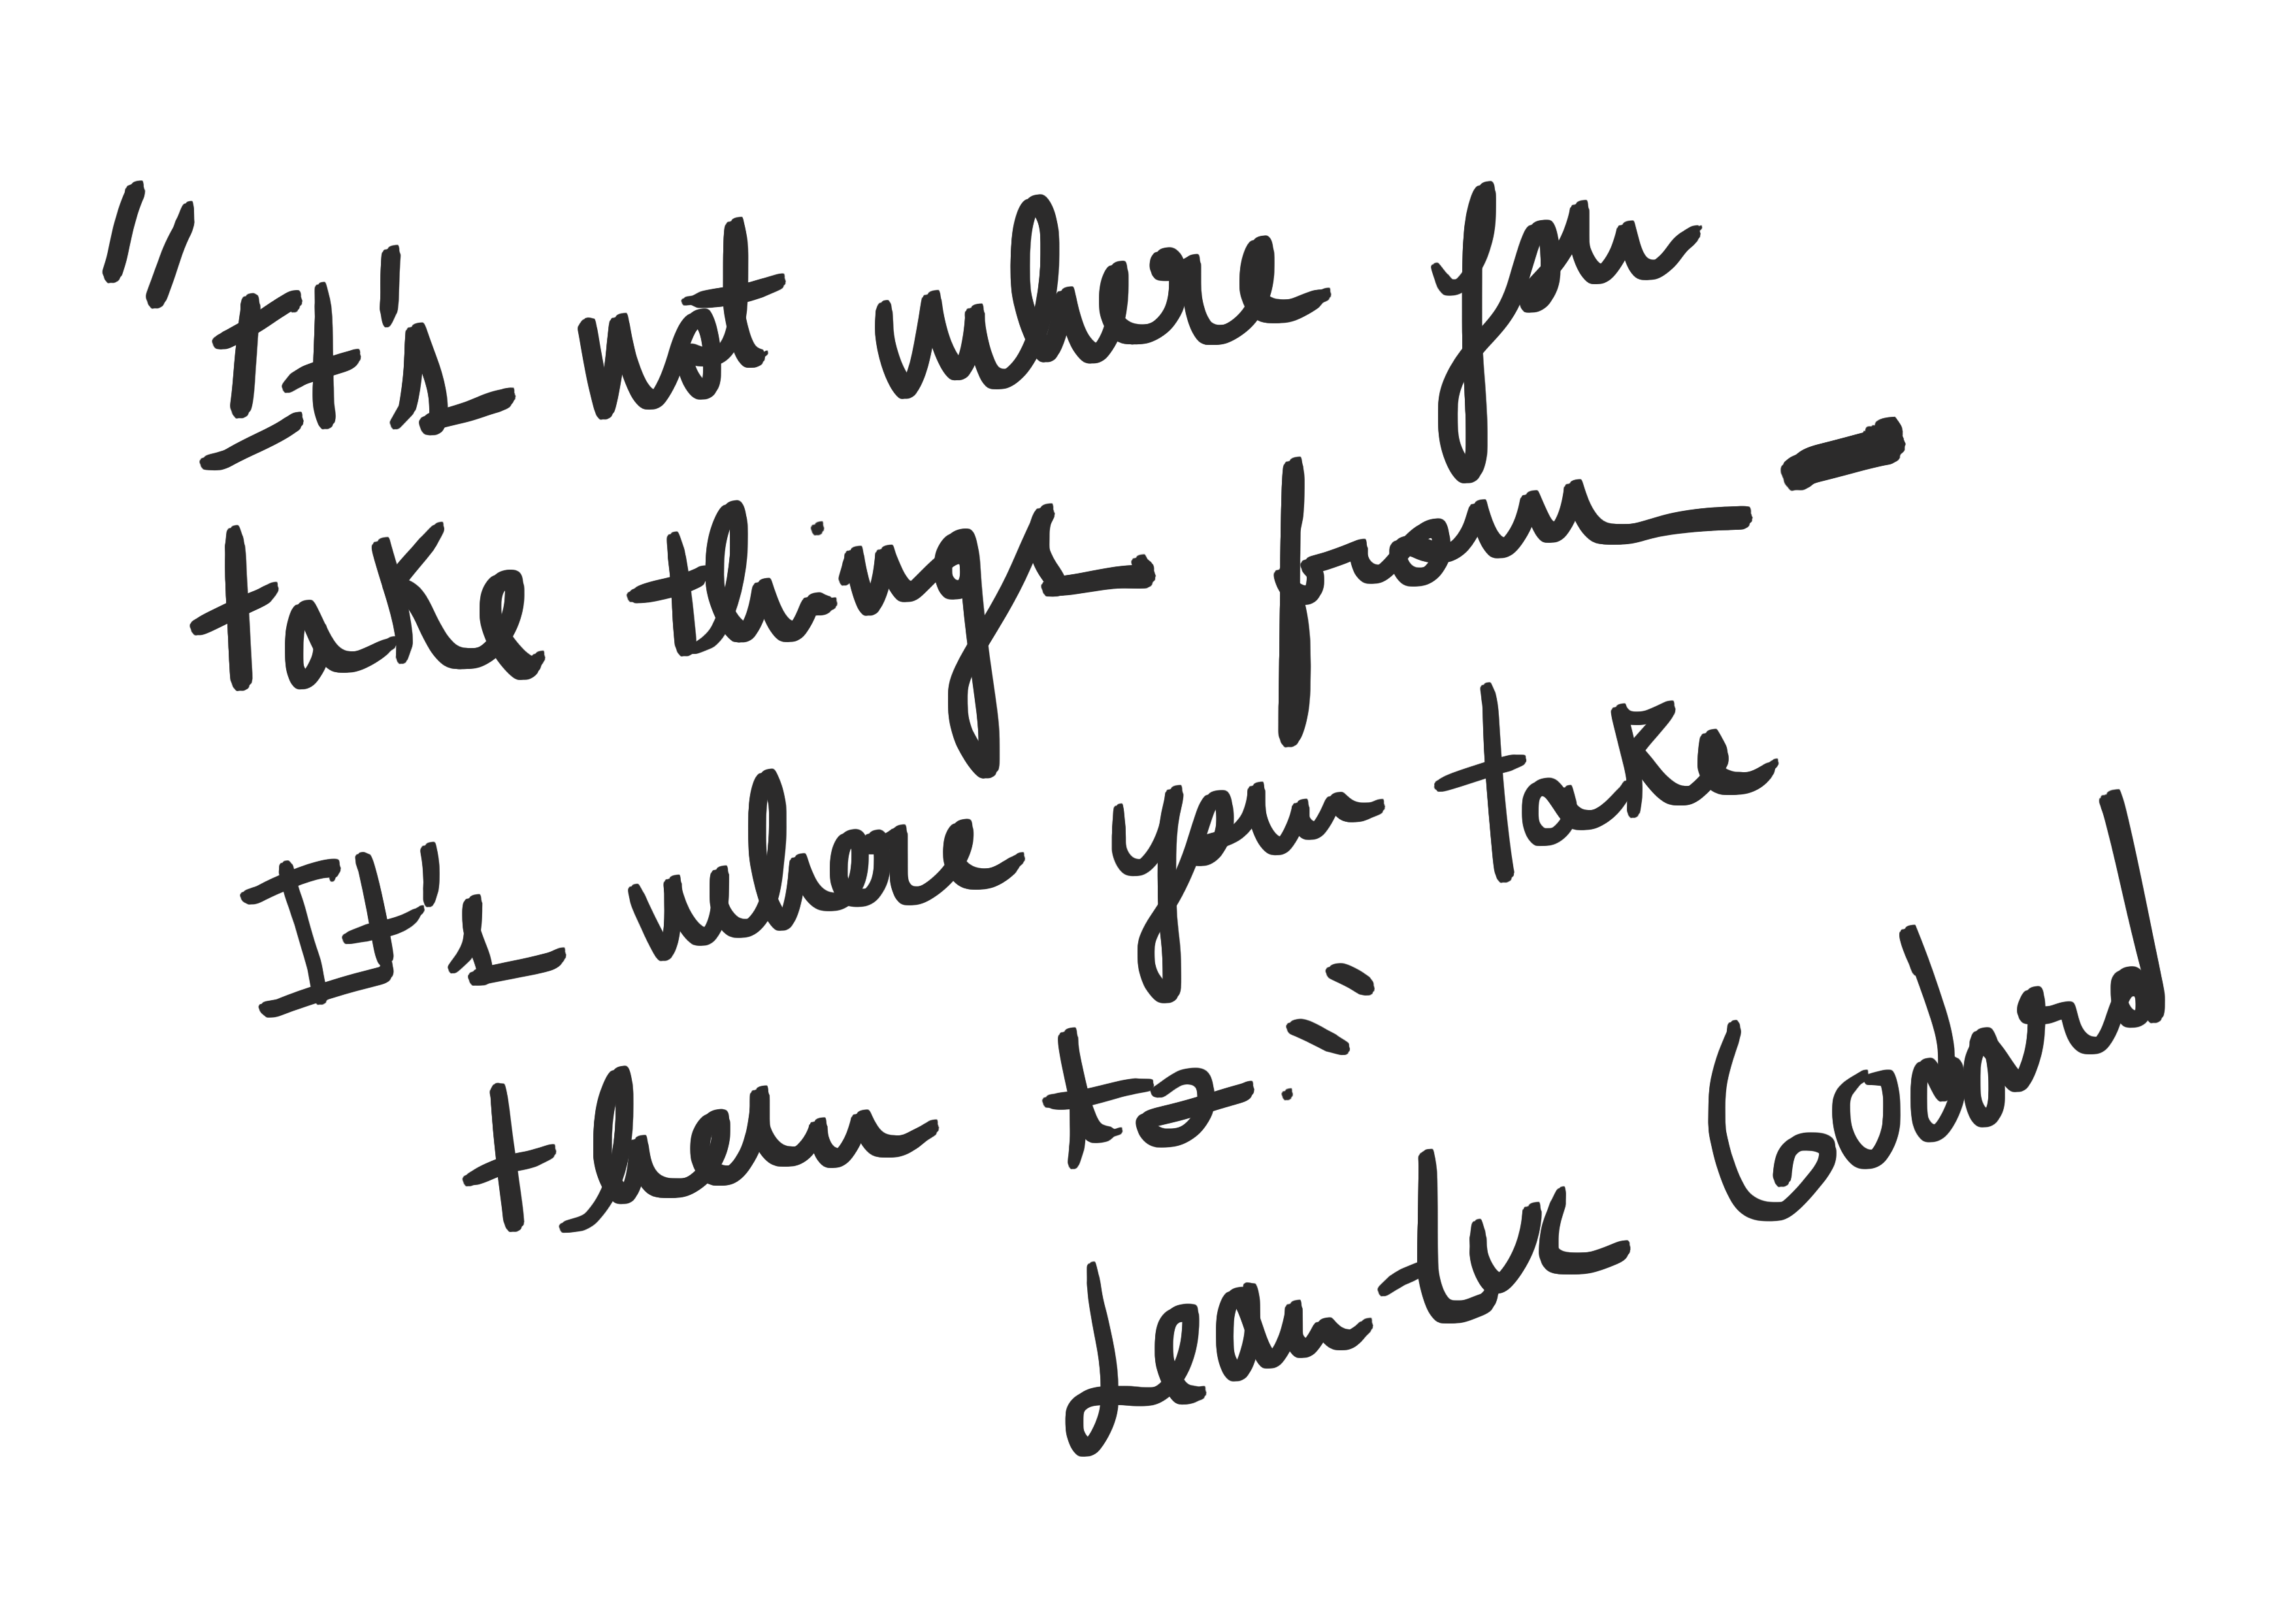 "It's not where you
take things from —
It's where you take
them to."
Jean-Luc Godard